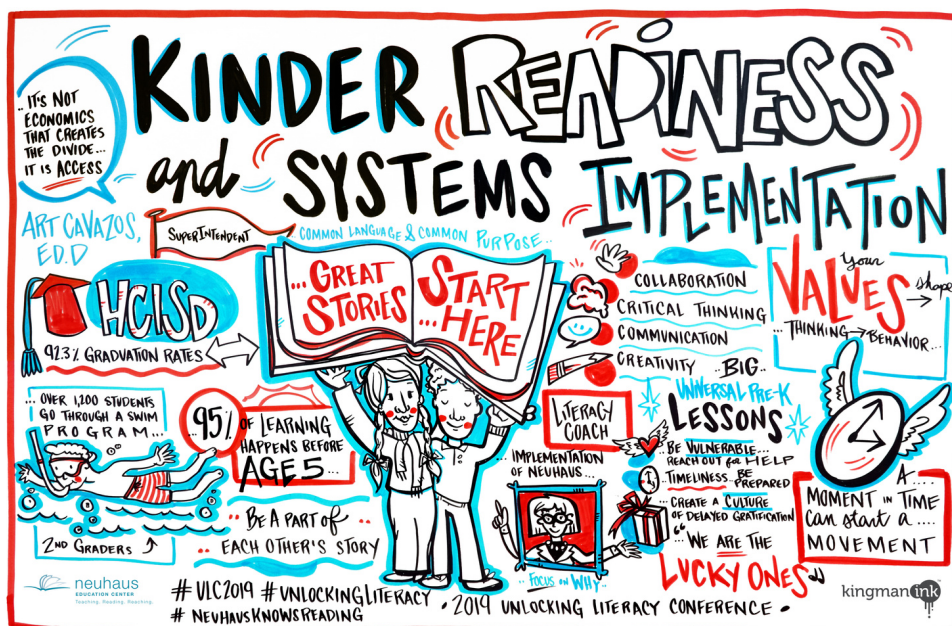 KINDER READINESS
and SYSTEMS IMPLEMENTATION
.. IT'S NOT
ECONOMICS
THAT CREATES
THE DIVIDE...
IT IS ACCESS
ART CAVAZOS,
ED.D
SUPERINTENDENT
HCISD
92.3% GRADUATION RATES
COMMON LANGUAGE & COMMON PURPOSE..
...GREAT
STORIES
START
...HERE
COLLABORATION
CRITICAL THINKING
COMMUNICATION
CREATIVITY
Your
VALUES
shape
... THINKING → BEHAVIOR...
... OVER 1,200 STUDENTS
GO THROUGH A SWIM
PROGRAM...
2ND GRADERS
95%
OF LEARNING
HAPPENS BEFORE
AGE 5...
.. BE A PART of ..
.. EACH OTHER'S STORY
LITERACY
COACH
... IMPLEMENTATION
OF NEUHAUS...
.. FOCUS on WHY ..
..BIG..
UNIVERSAL PRE-K
LESSONS
BE VULNERABLE...
REACH OUT for HELP
TIMELINESS.. BE
PREPARED
CREATE A CULTURE
OF DELAYED GRATIFICATION
"...WE ARE THE
LUCKY ONES"
A....
MOMENT IN TIME
can start a....
MOVEMENT
neuhaus
EDUCATION CENTER
Teaching. Reading. Reaching.
# ULC2019 # UNLOCKINGLITERACY • 2019 UNLOCKING LITERACY CONFERENCE •
# NEUHAUSKNOWSREADING
kingmanink